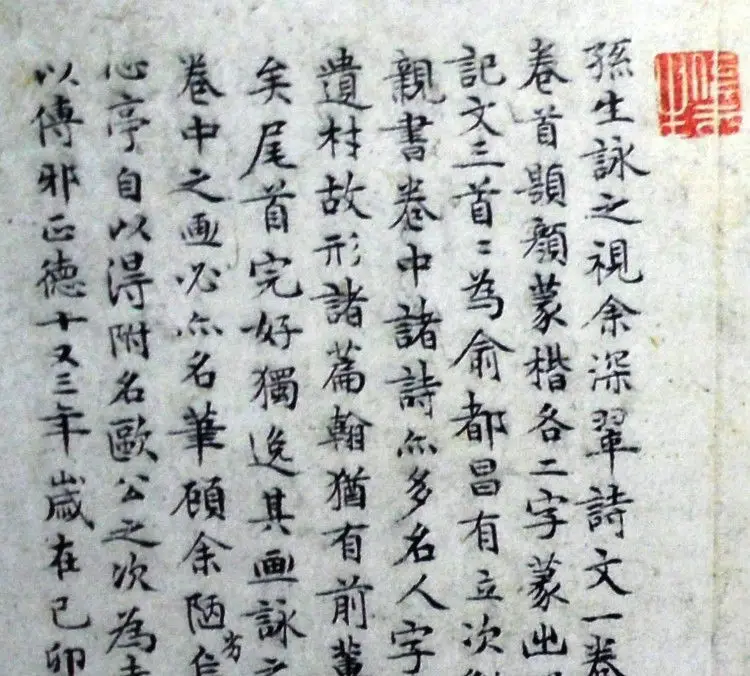 孫生詠之視余深翠詩文一卷
卷首顥顏蒙楷各二字蒙出
記文三首〻為俞都昌有立次
親書卷中諸詩尒多名人字
遺材故形諸篇翰猶有前輩
矣尾首完好獨逸其画詠之
卷中之画必尒名筆顧余陋
心亭自以淂附名歐公之次為
以傳邪正德十又三年歲在己卯